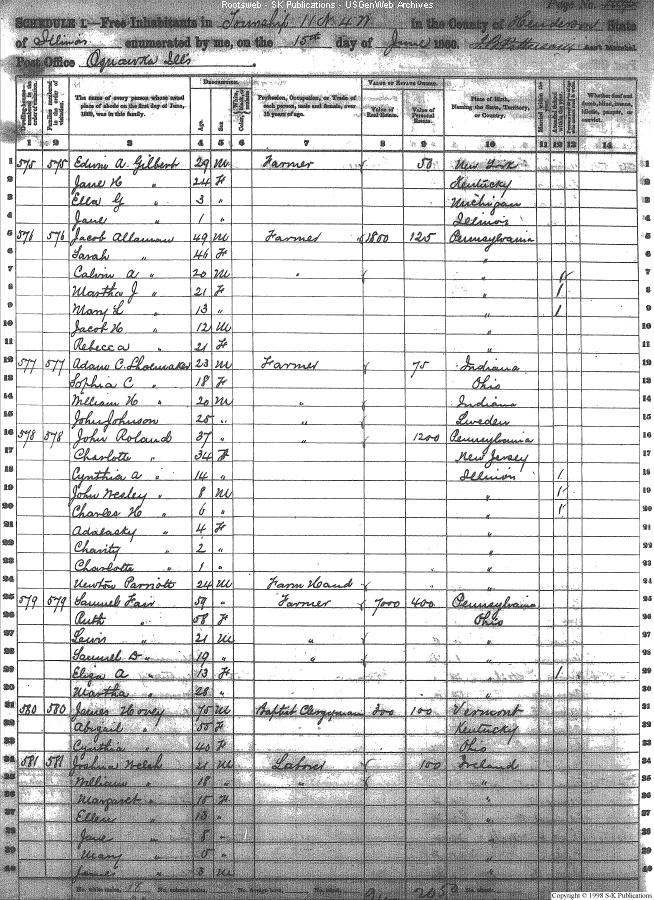 Rootsweb - SK Publications - USGenWeb Archives
Page No.
SCHEDULE 1.—Free Inhabitants in Township 11 N 4 W in the County of Henderson State
of Illinois enumerated by me, on the 15th day of June 1860. Ass't Marshal
Post Office Oquawka Ills
Dwelling-houses numbered in the order of visitation.
Families numbered in the order of visitation.
The name of every person whose usual place of abode on the first day of June, 1860, was in this family.
DESCRIPTION.
Age.
Sex
Color,
Profession, Occupation, or Trade of each person, male and female, over 15 years of age.
VALUE OF ESTATE OWNED.
Value of Real Estate.
Value of Personal Estate.
Place of Birth, Naming the State, Territory, or Country.
Whether deaf and dumb, blind, insane, idiotic, pauper, or convict.
1 2 3 4 5 6 7 8 9 10 11 12 13 14
1 575 575 Edwin A. Gilbert 29 M Farmer 50 New York 1
2 Jane H " 24 F Kentucky 2
3 Ella G " 3 " Michigan 3
4 Jane " 1 " Illinois 4
5 576 576 Jacob Allaman 49 M Farmer 1800 125 Pennsylvania 5
6 Sarah " 46 F " 6
7 Calvin A " 20 M " " 1 7
8 Martha J " 21 F " 1 8
9 Mary L " 13 " " 1 9
10 Jacob H " 12 M " 10
11 Rebecca " 21 F " 11
12 577 577 Adam C. Shoemaker 23 M Farmer 75 Indiana 12
13 Sophia C. " 18 F Ohio 13
14 William H " 20 M " Indiana 14
15 John Johnson 25 " " Sweden 15
16 578 578 John Roland 37 " " 1200 Pennsylvania 16
17 Charlotte " 34 F New Jersey 17
18 Cynthia A " 14 " Illinois 1 18
19 John Wesley " 8 M " 1 19
20 Charles H " 6 " " 1 20
21 Adalasky " 4 F " 21
22 Charity " 2 " " 22
23 Charlotte " 1 " " 23
24 Newton Parriott 24 M Farm Hand " 24
25 579 579 Samuel Fair 59 " Farmer 7000 400 Pennsylvania 25
26 Ruth " 58 F Ohio 26
27 Lewis " 21 M " " 27
28 Samuel D " 19 " " " 28
29 Eliza A " 13 F " 1 29
30 Martha " 28 " " 30
31 580 580 James Hovey 75 M Baptist Clergyman 300 100 Vermont 31
32 Abigail " 55 F Kentucky 32
33 Cynthia " 40 F Ohio 33
34 581 581 Joshua Welsh 21 M Laborer 100 Ireland 34
35 William " 18 " " " 35
36 Margaret " 15 F " 36
37 Ellen " 13 " " 37
38 Jane " 8 " " 38
39 Mary " 5 " " 39
40 James " 3 M " 40
No. white males, 18 No. colored males, No. foreign born, No. blind,
Copyright © 1998 S-K Publications